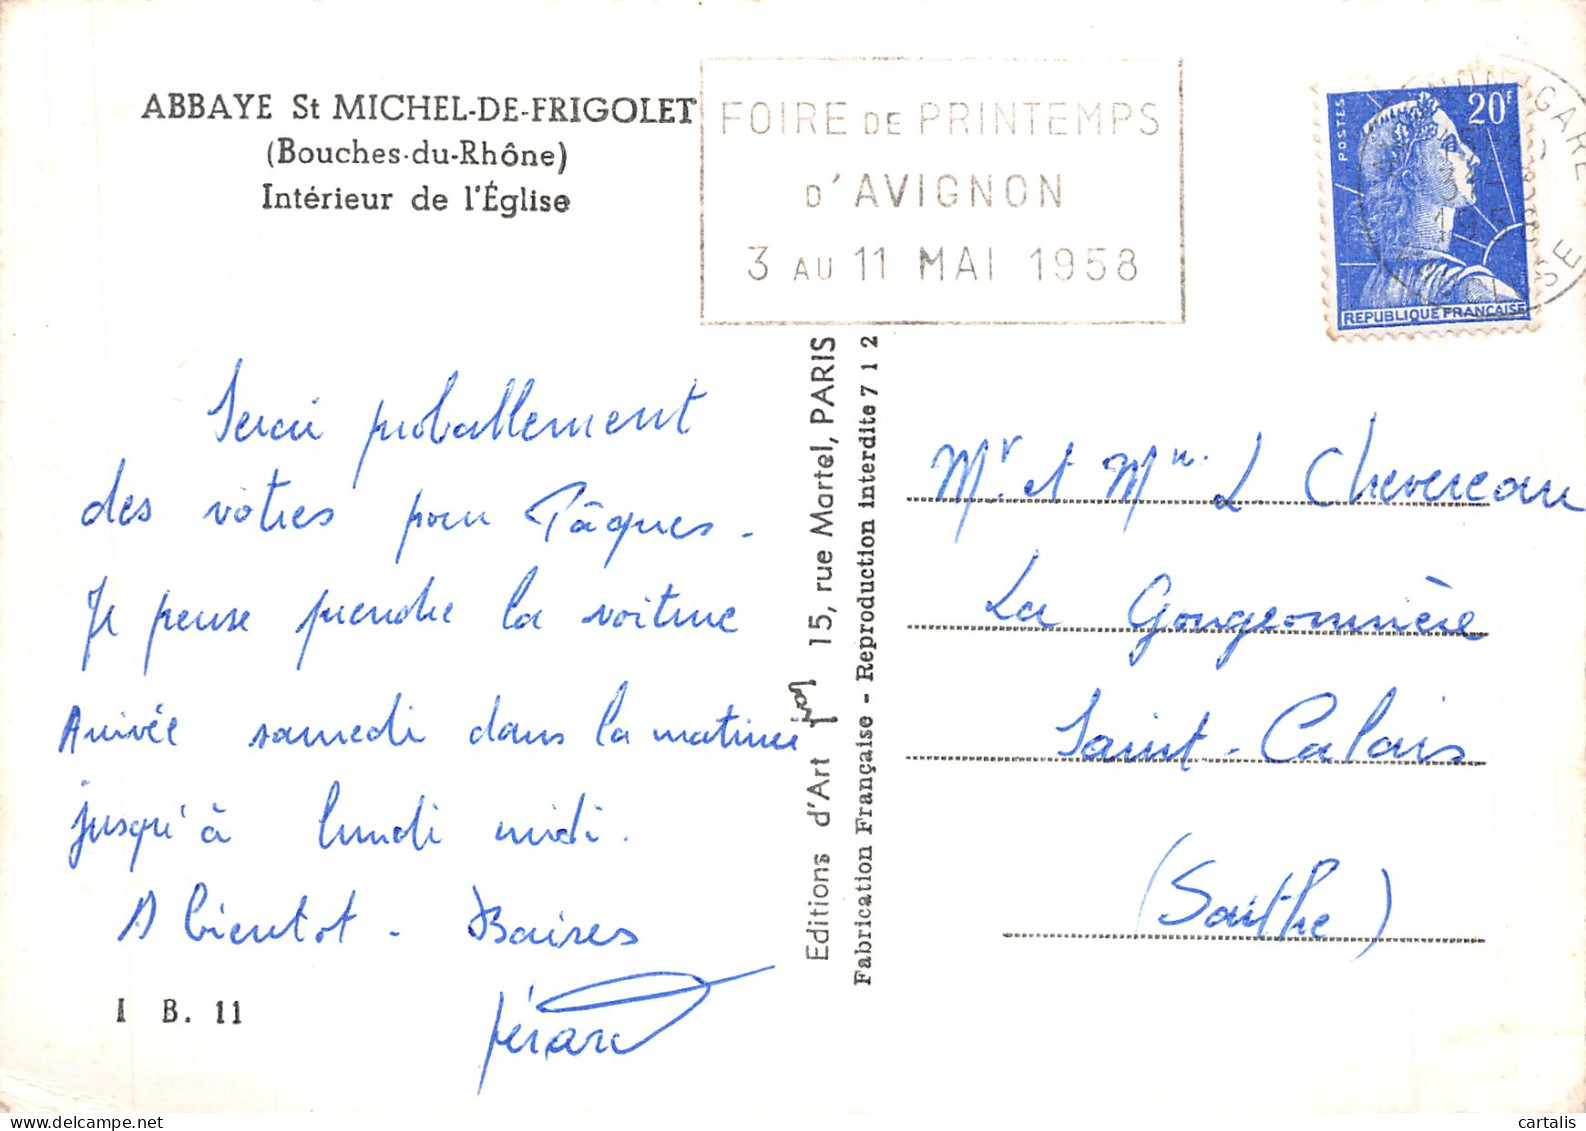 ABBAYE St MICHEL-DE-FRIGOLET
(Bouches-du-Rhône)
Intérieur de l'Église
FOIRE DE PRINTEMPS
D'AVIGNON
3 AU 11 MAI 1958
POSTES
20F
REPUBLIQUE FRANÇAISE
GARE
Serai proballement
des vôtres pour Pâques.
Je pense prendre la voiture
Arrivée samedi dans la matinée
jusqu'à lundi midi.
A bientot - Baises
Gérard
I B. 11
Editions d'Art 15, rue Martel, PARIS
Fabrication Française - Reproduction interdite 7 1 2
Mr et Mme L Chevereau
La Gougeonnière
Saint-Calais
(Sarthe)
cartalis